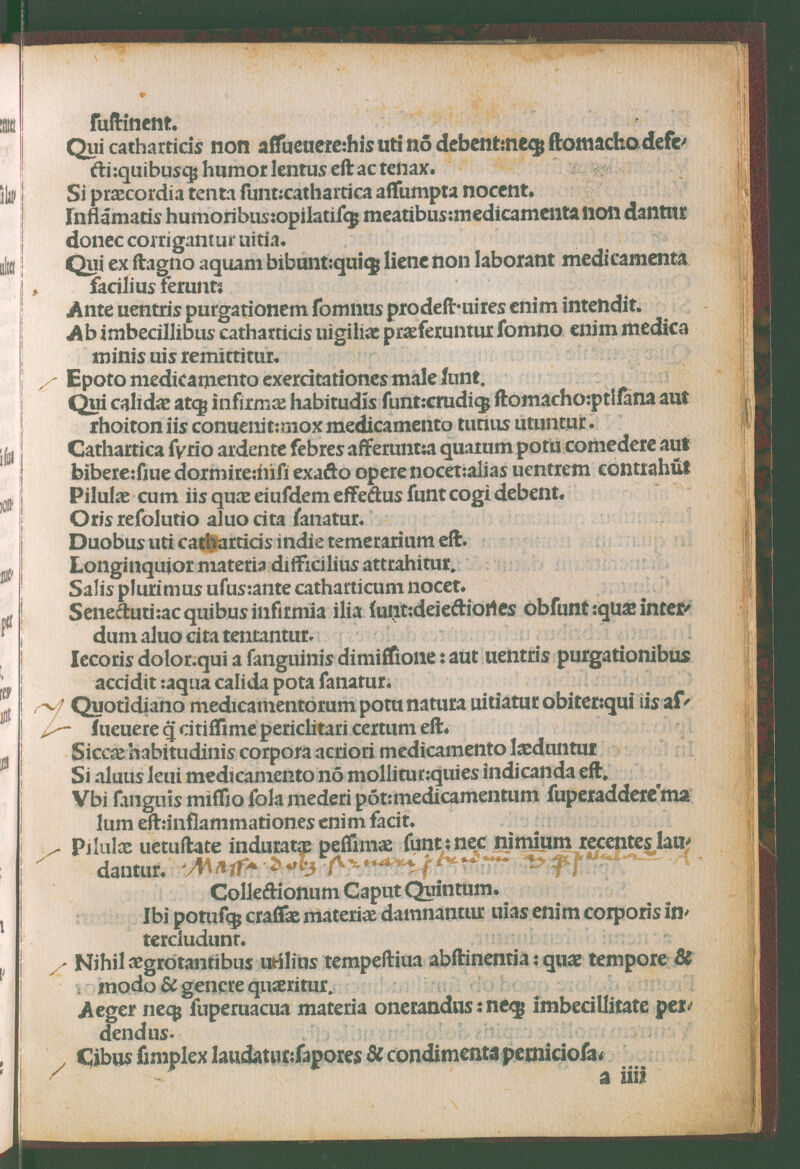 ſuſtinent.
Qui catharticis non aſſueuere:his uti nō debent:neqꝫ ſtomacho defe⸗
cti:quibusqꝫ humor lentus eſt ac tenax.
Si præcordia tenta ſunt:cathartica aſſumpta nocent.
Inflāmatis humoribus:opilatiſqꝫ meatibus:medicamenta non dantur
donec corrigantur uitia.
Qui ex ſtagno aquam bibunt:quiqꝫ liene non laborant medicamenta
facilius ferunt:
Ante uentris purgationem ſomnus prodeſt·uires enim intendit.
Ab imbecillibus catharticis uigiliæ præferuntur ſomno enim medica
minis uis remittitur.
Epoto medicamento exercitationes male ſunt.
Qui calidæ atqꝫ infirmæ habitudis ſunt:crudiqꝫ ſtomacho:ptiſana aut
rhoiton iis conuenit:mox medicamento tutius utuntur.
Cathartica ſyrio ardente febres afferunt:a quarum potu comedere aut
bibere:ſiue dormire:niſi exacto opere nocet:alias uentrem contrahūt
Pilulæ cum iis quæ eiuſdem effectus ſunt cogi debent.
Oris reſolutio aluo cita ſanatur.
Duobus uti catharticis in die temerarium eſt.
Longinquior materia difficilius attrahitur.
Salis plurimus uſus:ante catharticum nocet.
Senectuti:ac quibus infirmia ilia ſunt:deiectiones obſunt:quæ inter⸗
dum aluo cita tentantur.
Iecoris dolor:qui a ſanguinis dimiſſione: aut uentris purgationibus
accidit :aqua calida pota ſanatur.
Quotidiano medicamentorum potu natura uitiatur obiter:qui iis aſ⸗
ſueuere q̄ citiſſime periclitari certum eſt.
Siccæ habitudinis corpora acriori medicamento læduntur
Si aluus leui medicamento nō mollitur:quies indicanda eſt.
Vbi ſanguis miſſio ſola mederi pōt:medicamentum ſuperaddere ma
lum eſt:inflammationes enim facit.
Pilulæ uetuſtate induratæ peſſimæ ſunt: nec nimium recentes lau⸗
dantur.
Collectionum Caput Quintum.
Ibi potuſqꝫ craſſæ materiæ damnantur uias enim corporis in⸗
tercludunt.
Nihil ægrotantibus utilius tempeſtiua abſtinentia: quæ tempore &
modo & genere quæritur.
Aeger neqꝫ ſuperuacua materia onerandus: neqꝫ imbecillitate per⸗
dendus.
Cibus ſimplex laudatur:ſapores & condimenta pernicioſa.
a iiii